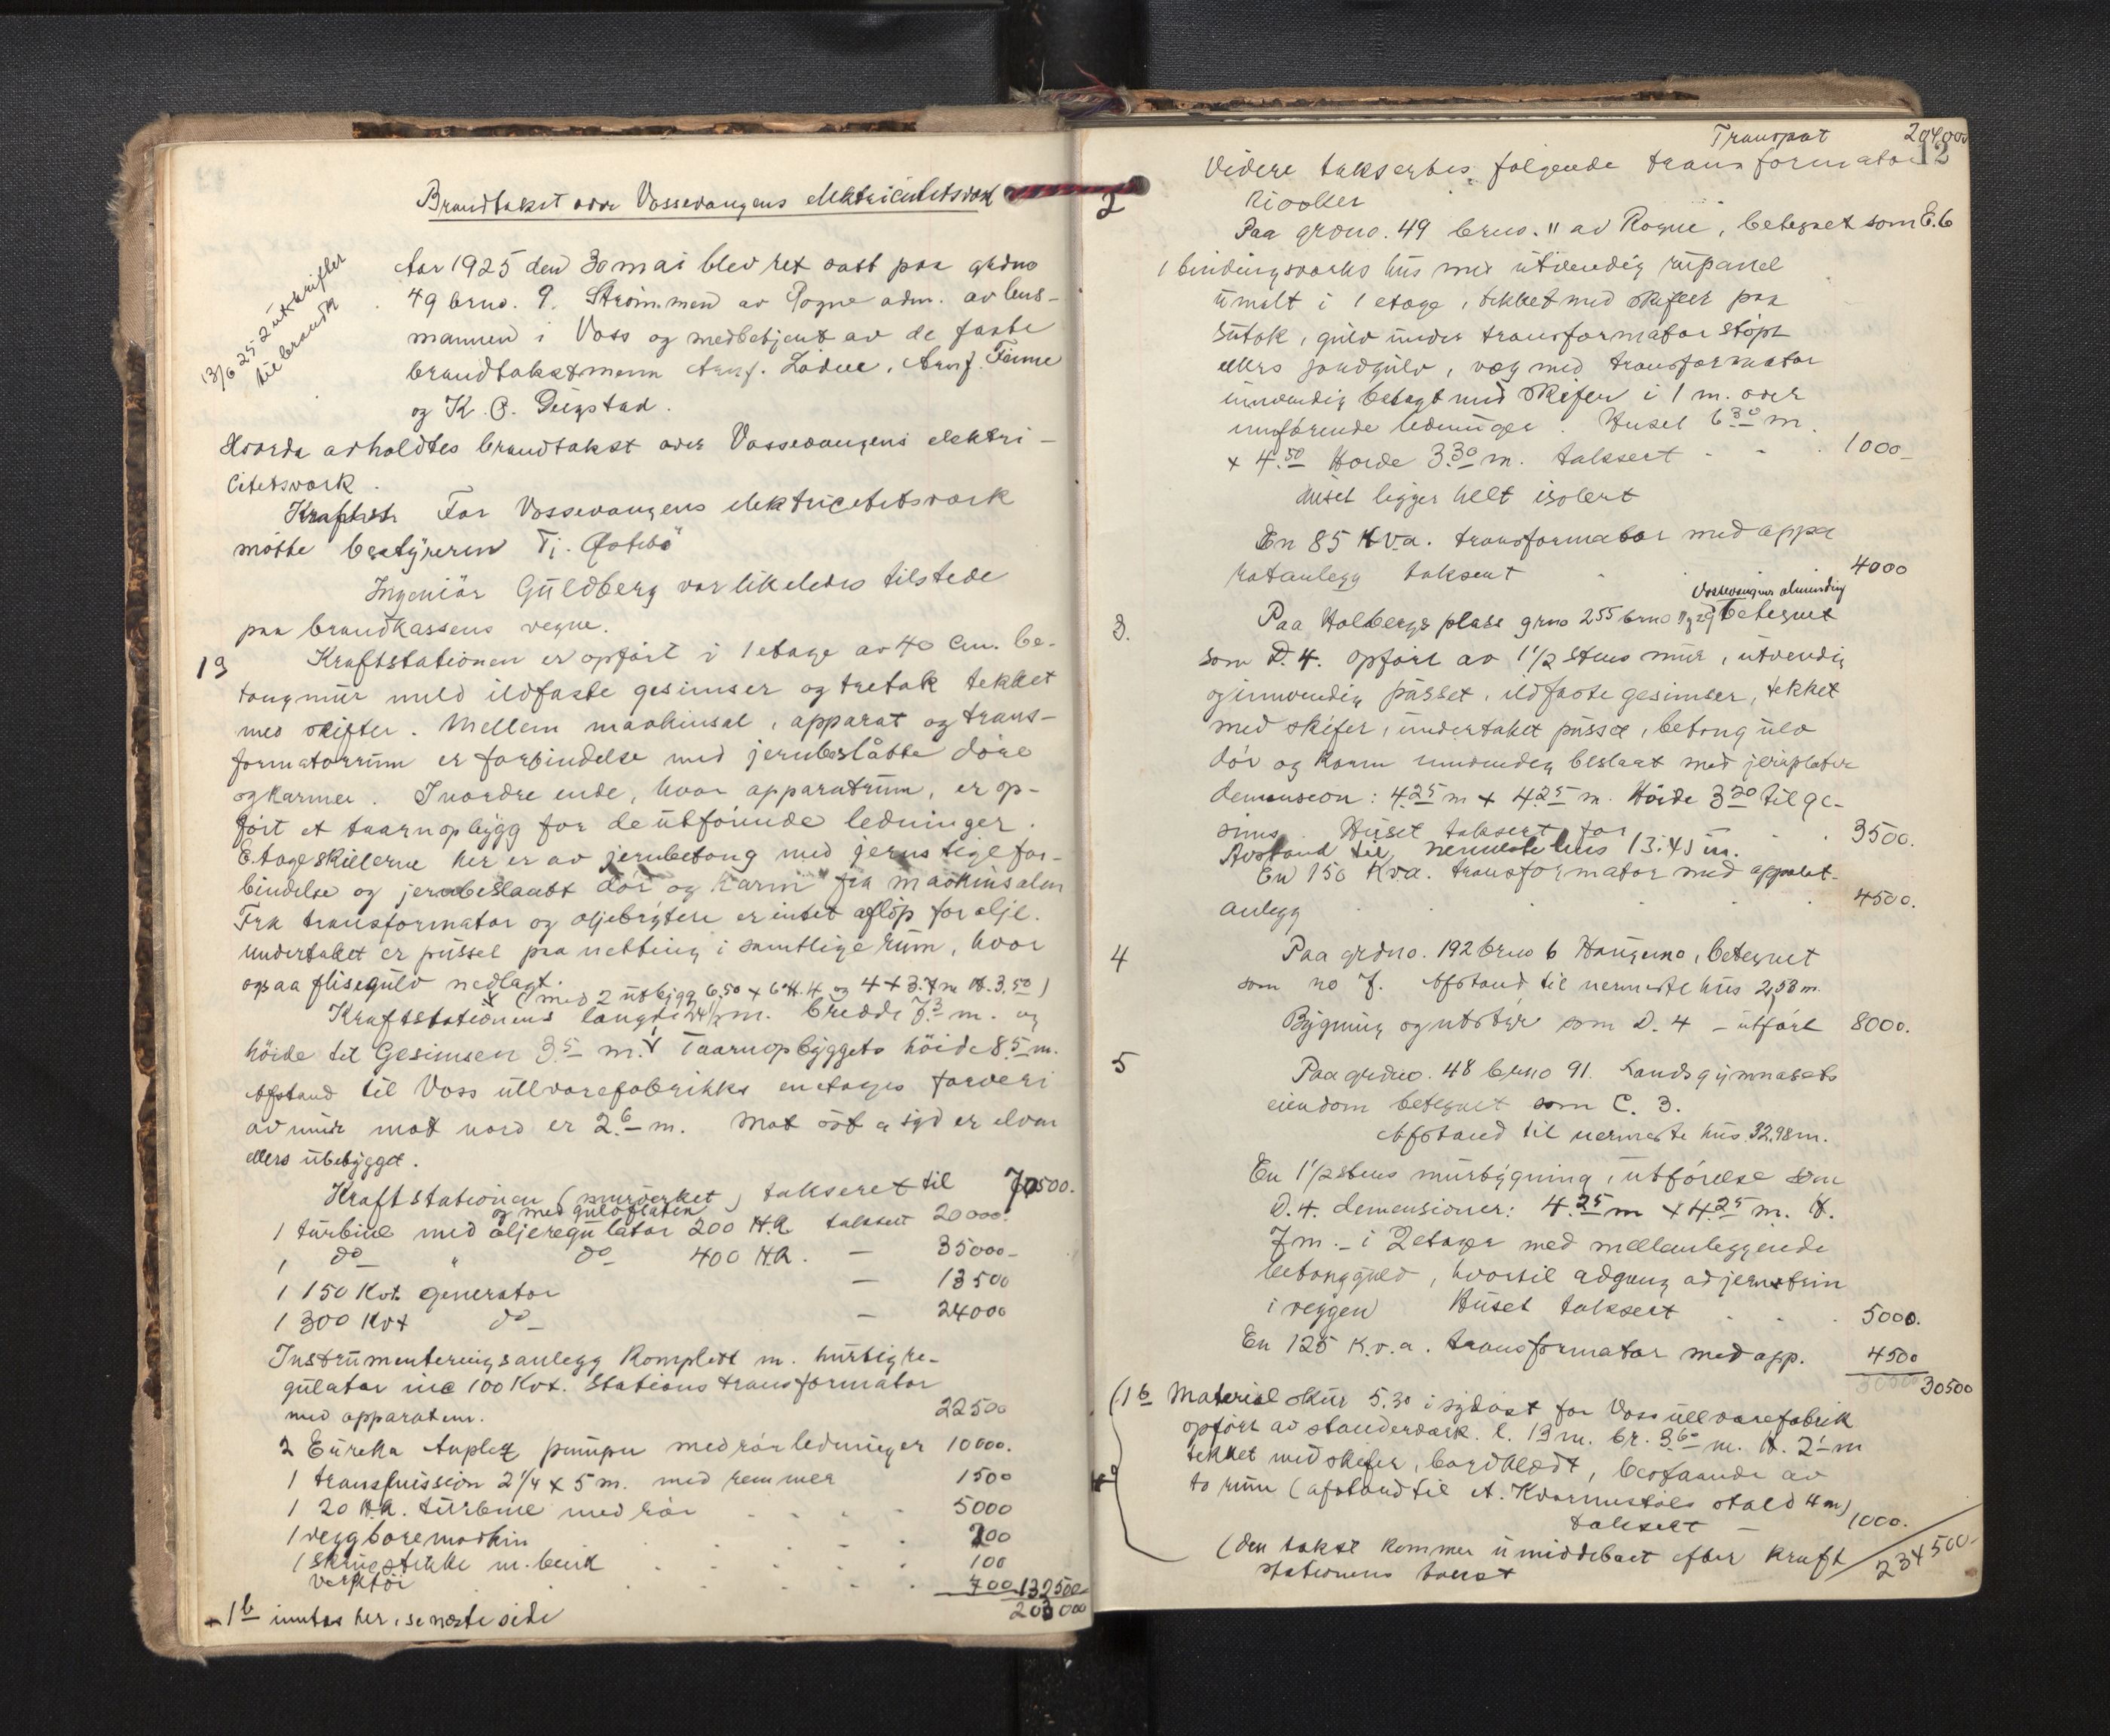 Brandtakst over Vossevangens elektricitetsverk
13/6 25 2 utskrifter
til brandk
Aar 1925 den 30 mai blev ret satt paa grdno
49 brno. 9. Strømmen av Rogne adm. av lens-
mannen i Voss og medbetjent av de faste
brandtakstmenn Arnf. Lødve, Arnf. Finne
og K. G. Gjigstad.
Hvorda avholdtes brandtakst over Vossevangens elektri-
citetsverk.
For Vossevangens elektricitetsverk
møtte bestyreren Tj.
Ingeniør Guldberg var likeledes tilstede
paa brandkassens vegne.
1a Kraftstationen er opført i 1 etage av 40 cm. be-
tongmur med ildfaste gesimser og tretak tekket
med skifer. Mellem maskinsal, apparat og trans-
formatorrum er forbindelse med jernbeslåtte døre
og karmer. I nordre ende, hvor apparatrum, er op-
ført et taarnopbygg for de utførende ledninger.
Etageskillerne her er av jernbetong med jernstige for-
bindelse og jernbeslaatt dør og karm fra maskinsalen
Fra transformator og oljebrytere er intet afløp for olje.
Undertaket er pusset paa netting i samtlige rum, hvor
ogsaa flisegulv nedlagt.
(med 2 utbygg 6.50 x 6 H. 4 og 4 x 3.7 m H. 3.50)
Kraftstationens længde 24 1/2 m. bredde 7.3 m. og
høide til Gesimsen 3.5 m. Taarnopbyggets høide 8.5 m.
Afstand til Voss ullvarefabrikks enetages farveri
av mur mot nord er 2.6 m. Mot øst a syd er elven
ellers ubebygget.
Kraftstationen (murverket) takseret til 70500.
og med gulvflaten
1 turbine med oljeregulator 200 H.K. taksert 20000.
1 do " do 400 H.K. — 35000-
1 150 Kvt. generator — 13500
1 300 Kvt do — 24000
Instrumenteringsanlegg komplett m. hurtigre-
gulator inc 100 Kvt. Stations transformator
med apparatur. 22500
2 Eureka duplex pumper med rørledninger 10000.
1 transmission 2 1/4 x 5 m. med remmer 1500
1 20 H.K. turbine med rør 5000
1 veggboremaskin 200
1 skruestikke m. benk 100
Verktøi 700 132500
203000
- 1b inntas her, se næste side
Transport 204,000
12
2 Videre takseres følgende transformator
kiosker
Paa grdno. 49 brno. " av Rogne, betegnet som E.6
1 bindingsverks hus med utvendig rupanel
umalt i 1 etage, tekket med skifer paa
sutak, gulv under transformator støpt
ellers jordgulv, veg med transformator
innvendig belagt med skifer i 1 m. over
innførende ledninger. Huset 6.30 m.
x 4.50 Høide 3.30 m. taksert 1000-
Huset ligger helt isolert
En 85 Kva. transformator med appa
ratanlegg taksert 4000
Vossevangens alminding
3. Paa Holbergs plass grno 255 brno betegnet
som D. 4. opført av 1 1/2 stens mur, utvendig
og innvendig pusset, ildfaste gesimser, tekket
med skifer, undertaket pusset, betong gulv
dør og karm innvendig beslaat med jernplater
demension: 4.25 m x 4.25 m. Høide 3.20 til ge-
sims. Huset taksert for 3500.
Avstand til nermeste hus 13.45 m.
En 150 Kva. transformator med apparat-
anlegg 4500.
4 Paa grdno. 192 brno 6 Haugemo, betegnet
som no 7. Afstand til nermeste hus 2,53 m.
Bygning og utstyr som D. 4 - utført 8000.
5 Paa grdno. 48 brno 91. Landsgymnasets
eiendom betegnet som C. 3.
Afstand til nermeste hus 32.98 m.
En 1 1/2 stens murbygning, utførelse som
D. 4. demensioner: 4.25 m x 4.25 m. H.
7 m. - i 2 etager med mellemliggende
betonggulv, hvortil adgang ad jerntrin
i veggen Huset taksert 5000.
En 125 K.v.a. transformator med app. 4500
30500
(1b Material skur 5.30 i sydøst for Voss ullvarefabrik
opført av stenderverk. l. 13 m. br. 3.60 m. H. 2.1 m
tekket med skifer, bordklædt, bestaaende av
to rum (afstand til A. Kvarmestøls stald 4 m)
taksert — 1000.
(den takst kommer umiddelbart efter kraft
stationens takst
234500-